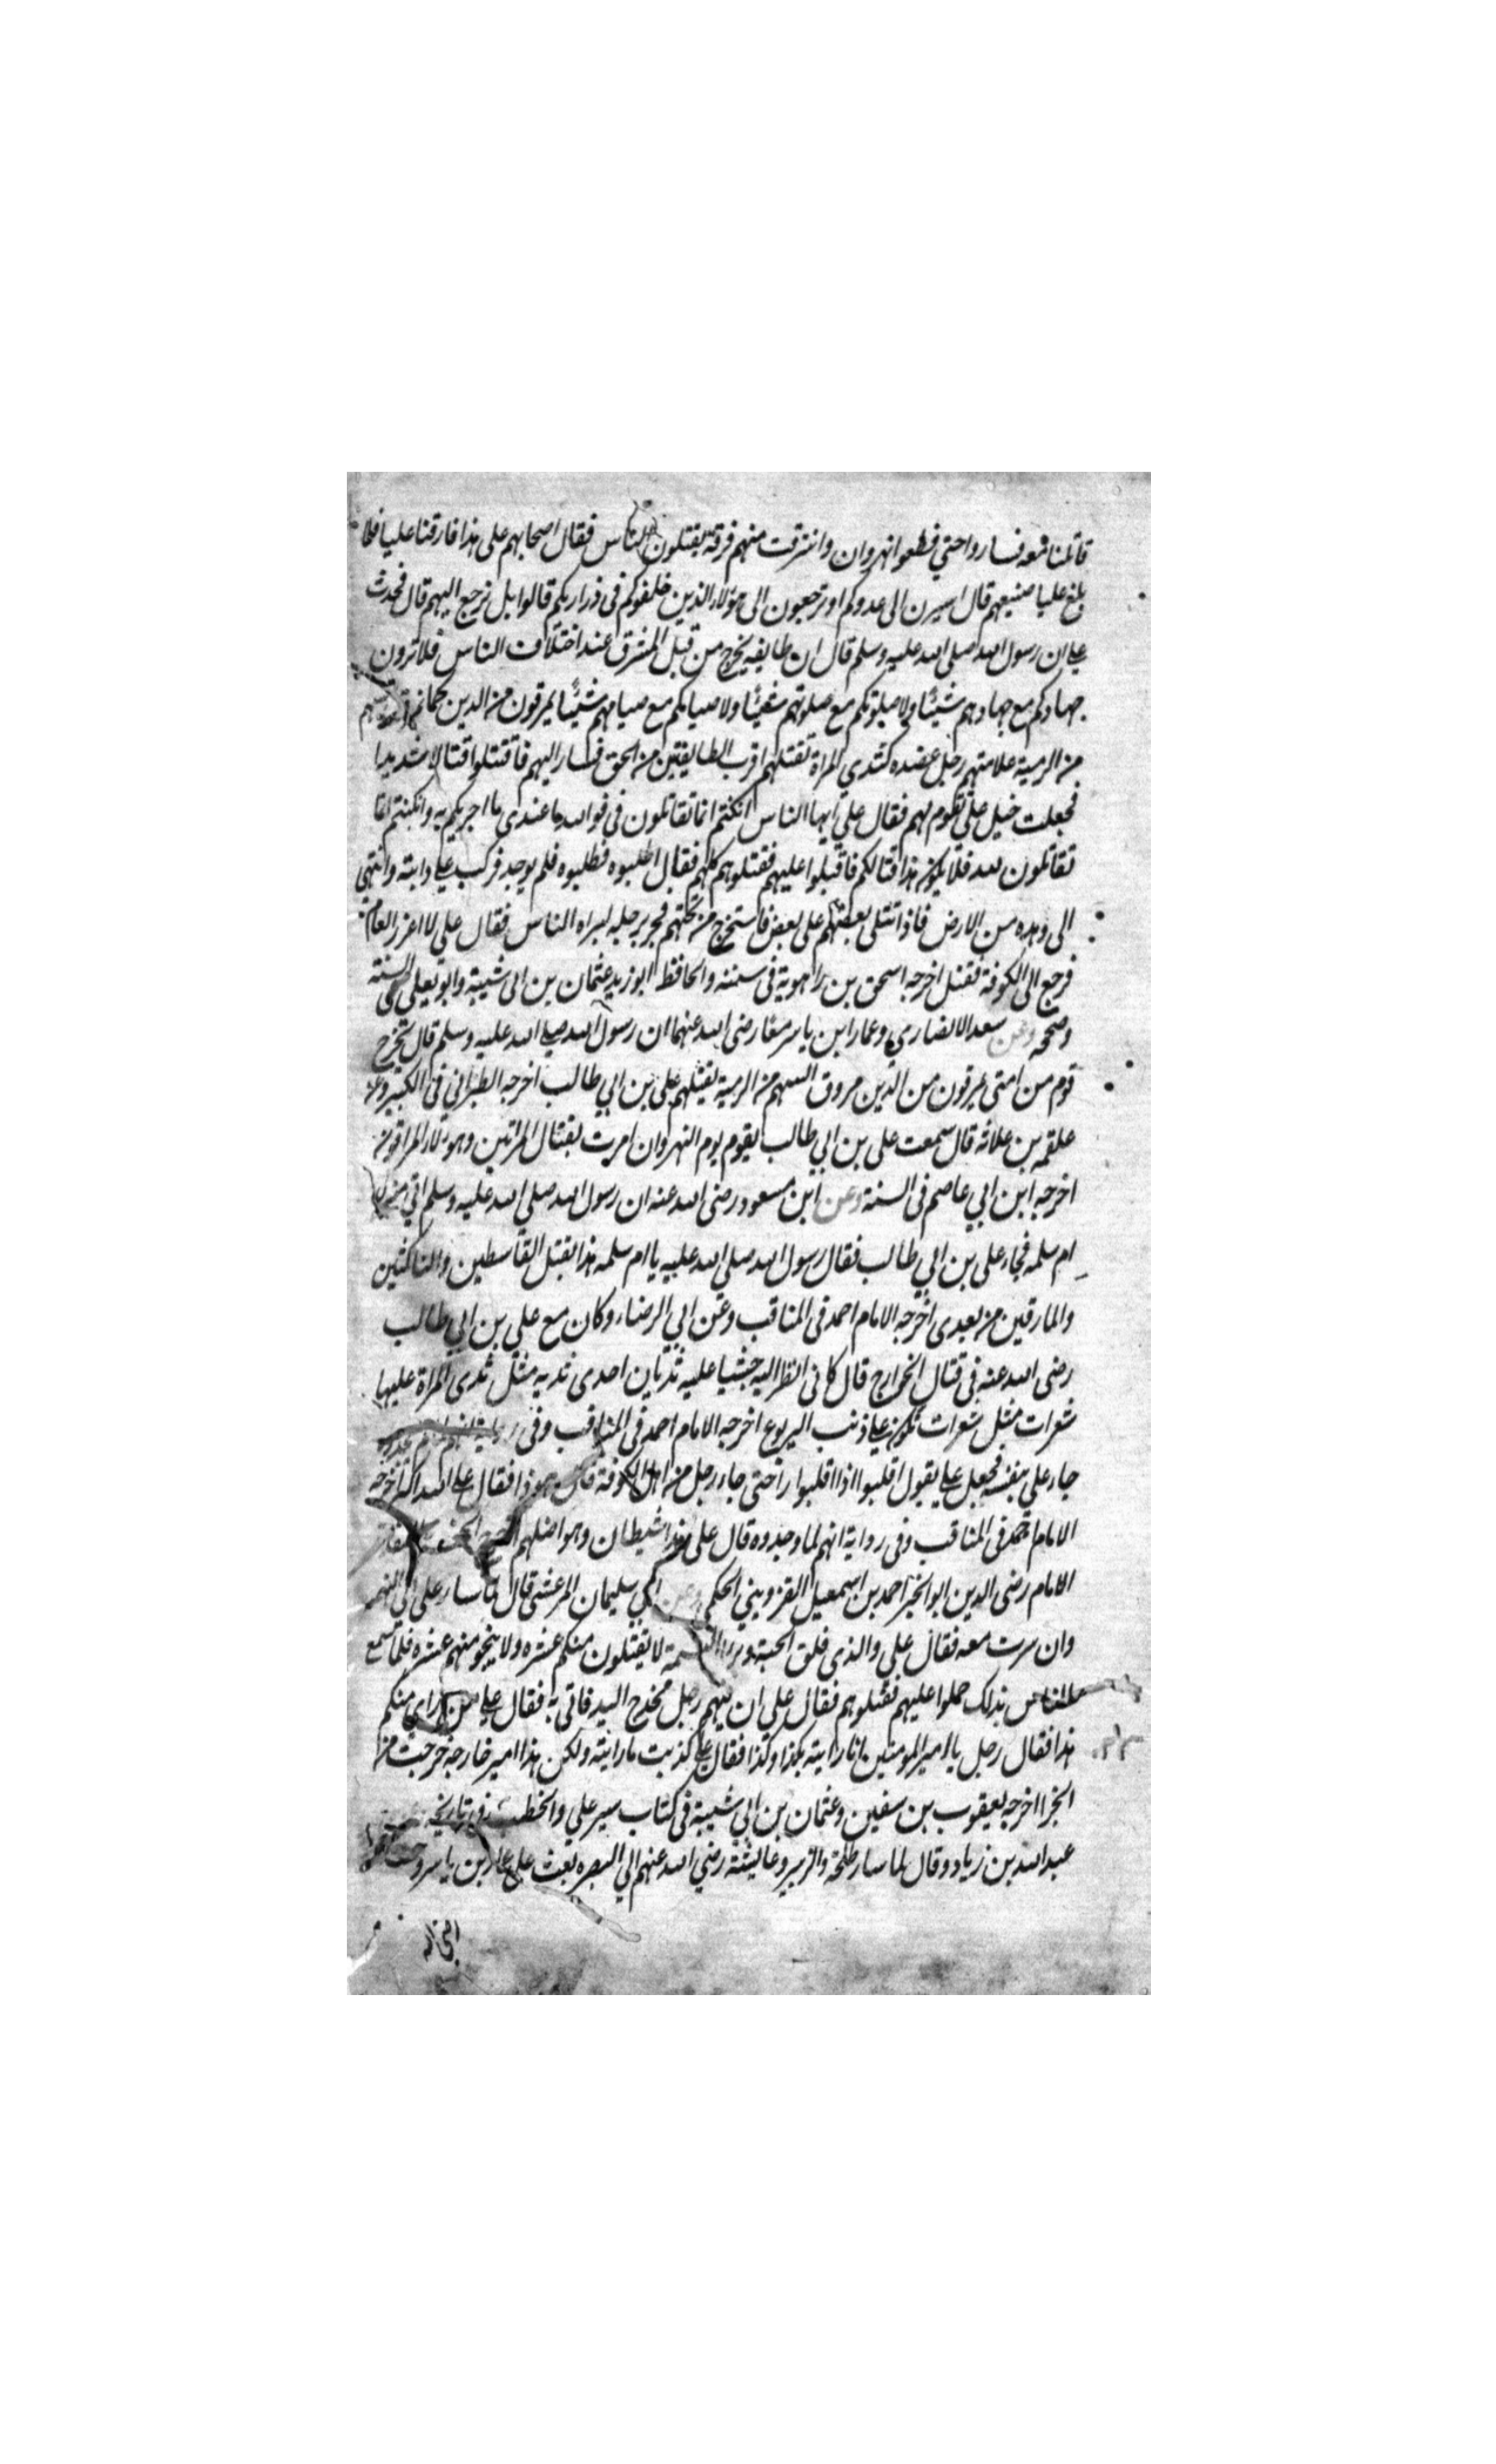 قاتلنا معه فساروا حتي قطعوا نهروان وافترقت منهم فرقة يقتلون الناس فقال اصحابهم على هذا فارقنا عليا فلما
بلغ عليا صنيعهم قال اسيرن الى عدوكم او ترجعون الى هؤلاء الذين خلفوكم في ذراريكم قالوا بل نرجع اليهم قال فحدث
علي ان رسول الله صلى الله عليه وسلم قال ان طايفه يخرج من قبل المشرق عند اختلاف الناس فلا ترون
جهادكم مع جهادهم شيئا ولا صلوتكم مع صلوتهم شيئا ولا صيامكم مع صيامهم شيئا يمرقون من الدين كما
من الرمية علامتهم رجل عضده كثدي المراة تقتلهم اقرب الطايفتين من الحق فسار اليهم فاقتتلوا قتالا شديدا
فجعلت خيل علي تقوم لهم فقال علي يايها الناس ان كنتم انما تقاتلون في فوالله ما عندي ما اجزيكم به وان كنتم انما
تقاتلون لله فلا يكون هذا قتالكم فاقبلوا عليهم فقتلوهم كلهم فقال اطلبوه فطلبوه فلم يوجد فركب علي دابته وانتهى
الى وهده من الارض فاذا قتلى بعضهم على بعض فاستخرج من تحتهم فجر برجله ليراه الناس فقال علي لا اغزو العام
فرجع الى الكوفة فقتل اخرجه اسحق بن راهوية في سننه والحافظ ابو زيد عثمان بن ابي شيبة وابو يعلى في السنة
وصححه وعن سعد الانصاري وعمار ابن ياسر معا رضى الله عنهما ان رسول الله صلى الله عليه وسلم قال تخرج
قوم من امتى يمرقون من الدين مروق السهم من الرمية يقتلهم على بن ابي طالب اخرجه الطبراني في الكبير وعن
علقمه بن علاثه قال سمعت على بن ابي طالب يقوم يوم النهروان امرت بقتال المارقين وهؤلاء المارقون
اخرجه ابن ابي عاصم في السنة وعن ابن مسعود رضى الله عنه ان رسول الله صلى الله عليه وسلم اتي منزل
ام سلمه فجاء على بن ابي طالب فقال رسول الله صلى الله عليه يا ام سلمه هذا يقتل القاسطين والناكثين
والمارقين من بعدى اخرجه الامام احمد في المناقب وعن ابي الرضاء وكان مع على بن ابي طالب
رضى الله عنه في قتال الخوارج قال كانى انظر اليه حبشيا عليه ثديان احدى ثديه مثل ثدى المراة عليها
شعرات مثل شعرات تكون على ذنب اليربوع اخرجه الامام احمد في المناقب وفى رواية انهم لم يجدوه
جاء علي بنفسه فجعل علي يقول اقلبوا اذا اقلبوا راحتى جاء رجل من اهل الكوفة فقال هو ذا فقال علي الله اكبر اخرجه
الامام احمد في المناقب وفى رواية انهم لما وجدوه قال على هذا شيطان وهو اضلهم
الامام رضى الدين ابو الخير احمد بن اسمعيل القزويني الحكمي وعن ابي سليمان المرعشى قال لما سار على الى النهر
وان سرت معه فقال علي والذى فلق الحبة وبرا النسمة لا يقتلون منكم عشره ولا ينجو منهم عشره فلما سمع
الناس بذلك حملوا عليهم فقتلوهم فقال علي ان فيهم رجل مخدج اليد فاتي به فقال علي من راى منكم
هذا فقال رجل يا امير المومنين انا رايته بكذا وكذا فقال علي كذبت ما رايته ولكن هذا امير خارجة خرجت من
الجن اخرجه يعقوب بن سفين وعثمان بن ابي شيبة في كتاب سير علي والخطيب في تاريخه
عبد الله بن زياد وقال لما سار طلحة والزبير وعايشة رضي الله عنهم الي البصره بعث على عمار بن ياسر وحسن